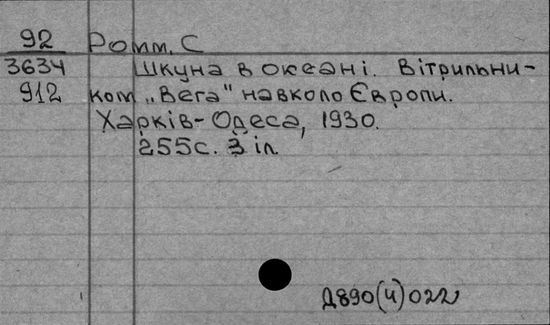 92 Ромм. С
3634 Шкуна в океані. Вітрильни-
912 ком „Вега" навколо Європи.
Харків-Одеса, 1930.
255с. З іл.
Д890(4)022